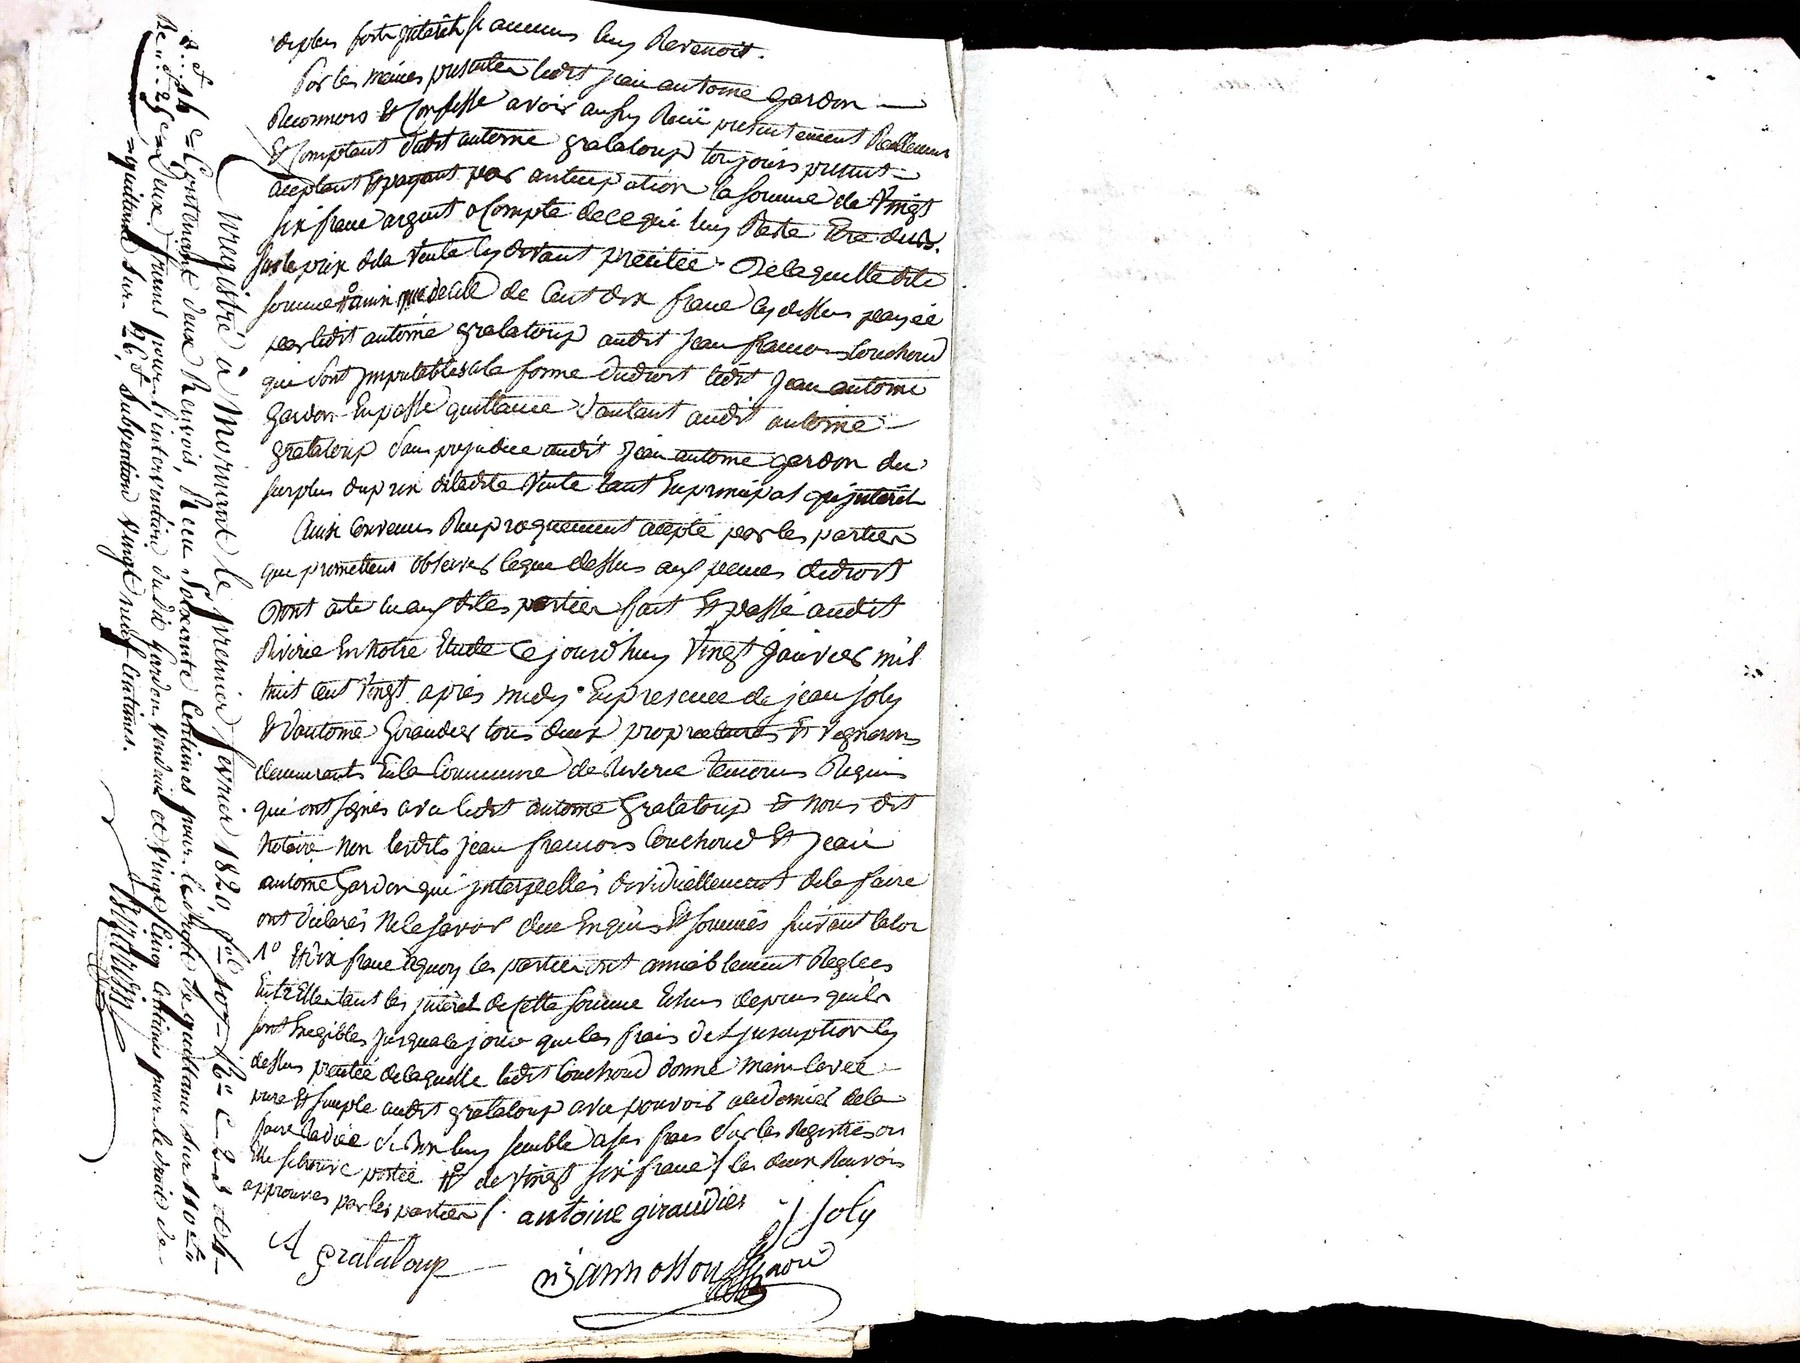 deplus forts jnterêts si aucuns luy Revenoit.
Par les mêmes presentes ledit jean antoine gardon
Reconnois Et Confesse avoir aussy Recü presentement Reallement
Et Comptant dudit antoine grataloup toujours present
aceptant Et payant par anticipation la somme de Vingt
six franc argent a Compte de ce qui luy Reste Etre dub
sur le prix dela Vente cy devant precitée. De laquelle dite
somme # ainsi que de celle de Cent dix franc cy dessus payée
par ledit antoine grataloup audit jean francois Couchoud
qui sont jmputables a la forme dudroit ledit jean antoine
gardon En passe quittance d'autant audit antoine
grataloup sans prejudice audit jean antoine gardon du
surplus du prix deladite Vente tant En principal qu'jnterêt
Ainsi Convenu Reciproquement acepté par les parties
que promettent observer ceque dessus aux peines dedroit
Dont acte lu aux dites parties fait Et passé audit
Riverie En notre Etude Ce jourd'huy Vingt janvier mil
huit cent Vingt après midy. En presence de jean joly
Et d'antoine Giraudier tous deux propriétaires Et Vignerons
demeurants En la Commune de Riverie temoins Requis
qui ont signés avec ledit antoine Grataloup Et nous dit
Notaire non lesdits jean francois Couchoud Et jean
antoine Gardon qui jnterpellés dividuellement dele faire
ont déclarés Nele savoir de ce Enquis Et sommés suivant la loi
1º Et dix franc aquoy les parties ont amiablement Reglées
Entr'Elles tant les jnterêt de cette somme Echus depuis qu'ils
sont Exegibles jusqu'a ce jour que les frais del'jnscription cy
dessus precitée delaquelle ledit Couchoud donne main levée
pure Et simple audit grataloup avec pouvoir de la
faire Radiée si bon luy semble a ses frais sur les Registres ou
Elle se trouve portée # de Vingt six franc / les deux Renvois
approuvés par les parties /. antoine giraudier
J joly
A grataloup
Janmosson
Enregistré à Mornant le premier fevrier 1820, fol 107
Contenant deux Renvois, Recu Soixante Centimes pour le droit de quittance sur 110
deux francs pour l'intervention dudit Gardon vendeur et vingt Cinq Centimes pour le droit de
quittance sur 26f, Subvention vingt neuf Centimes.